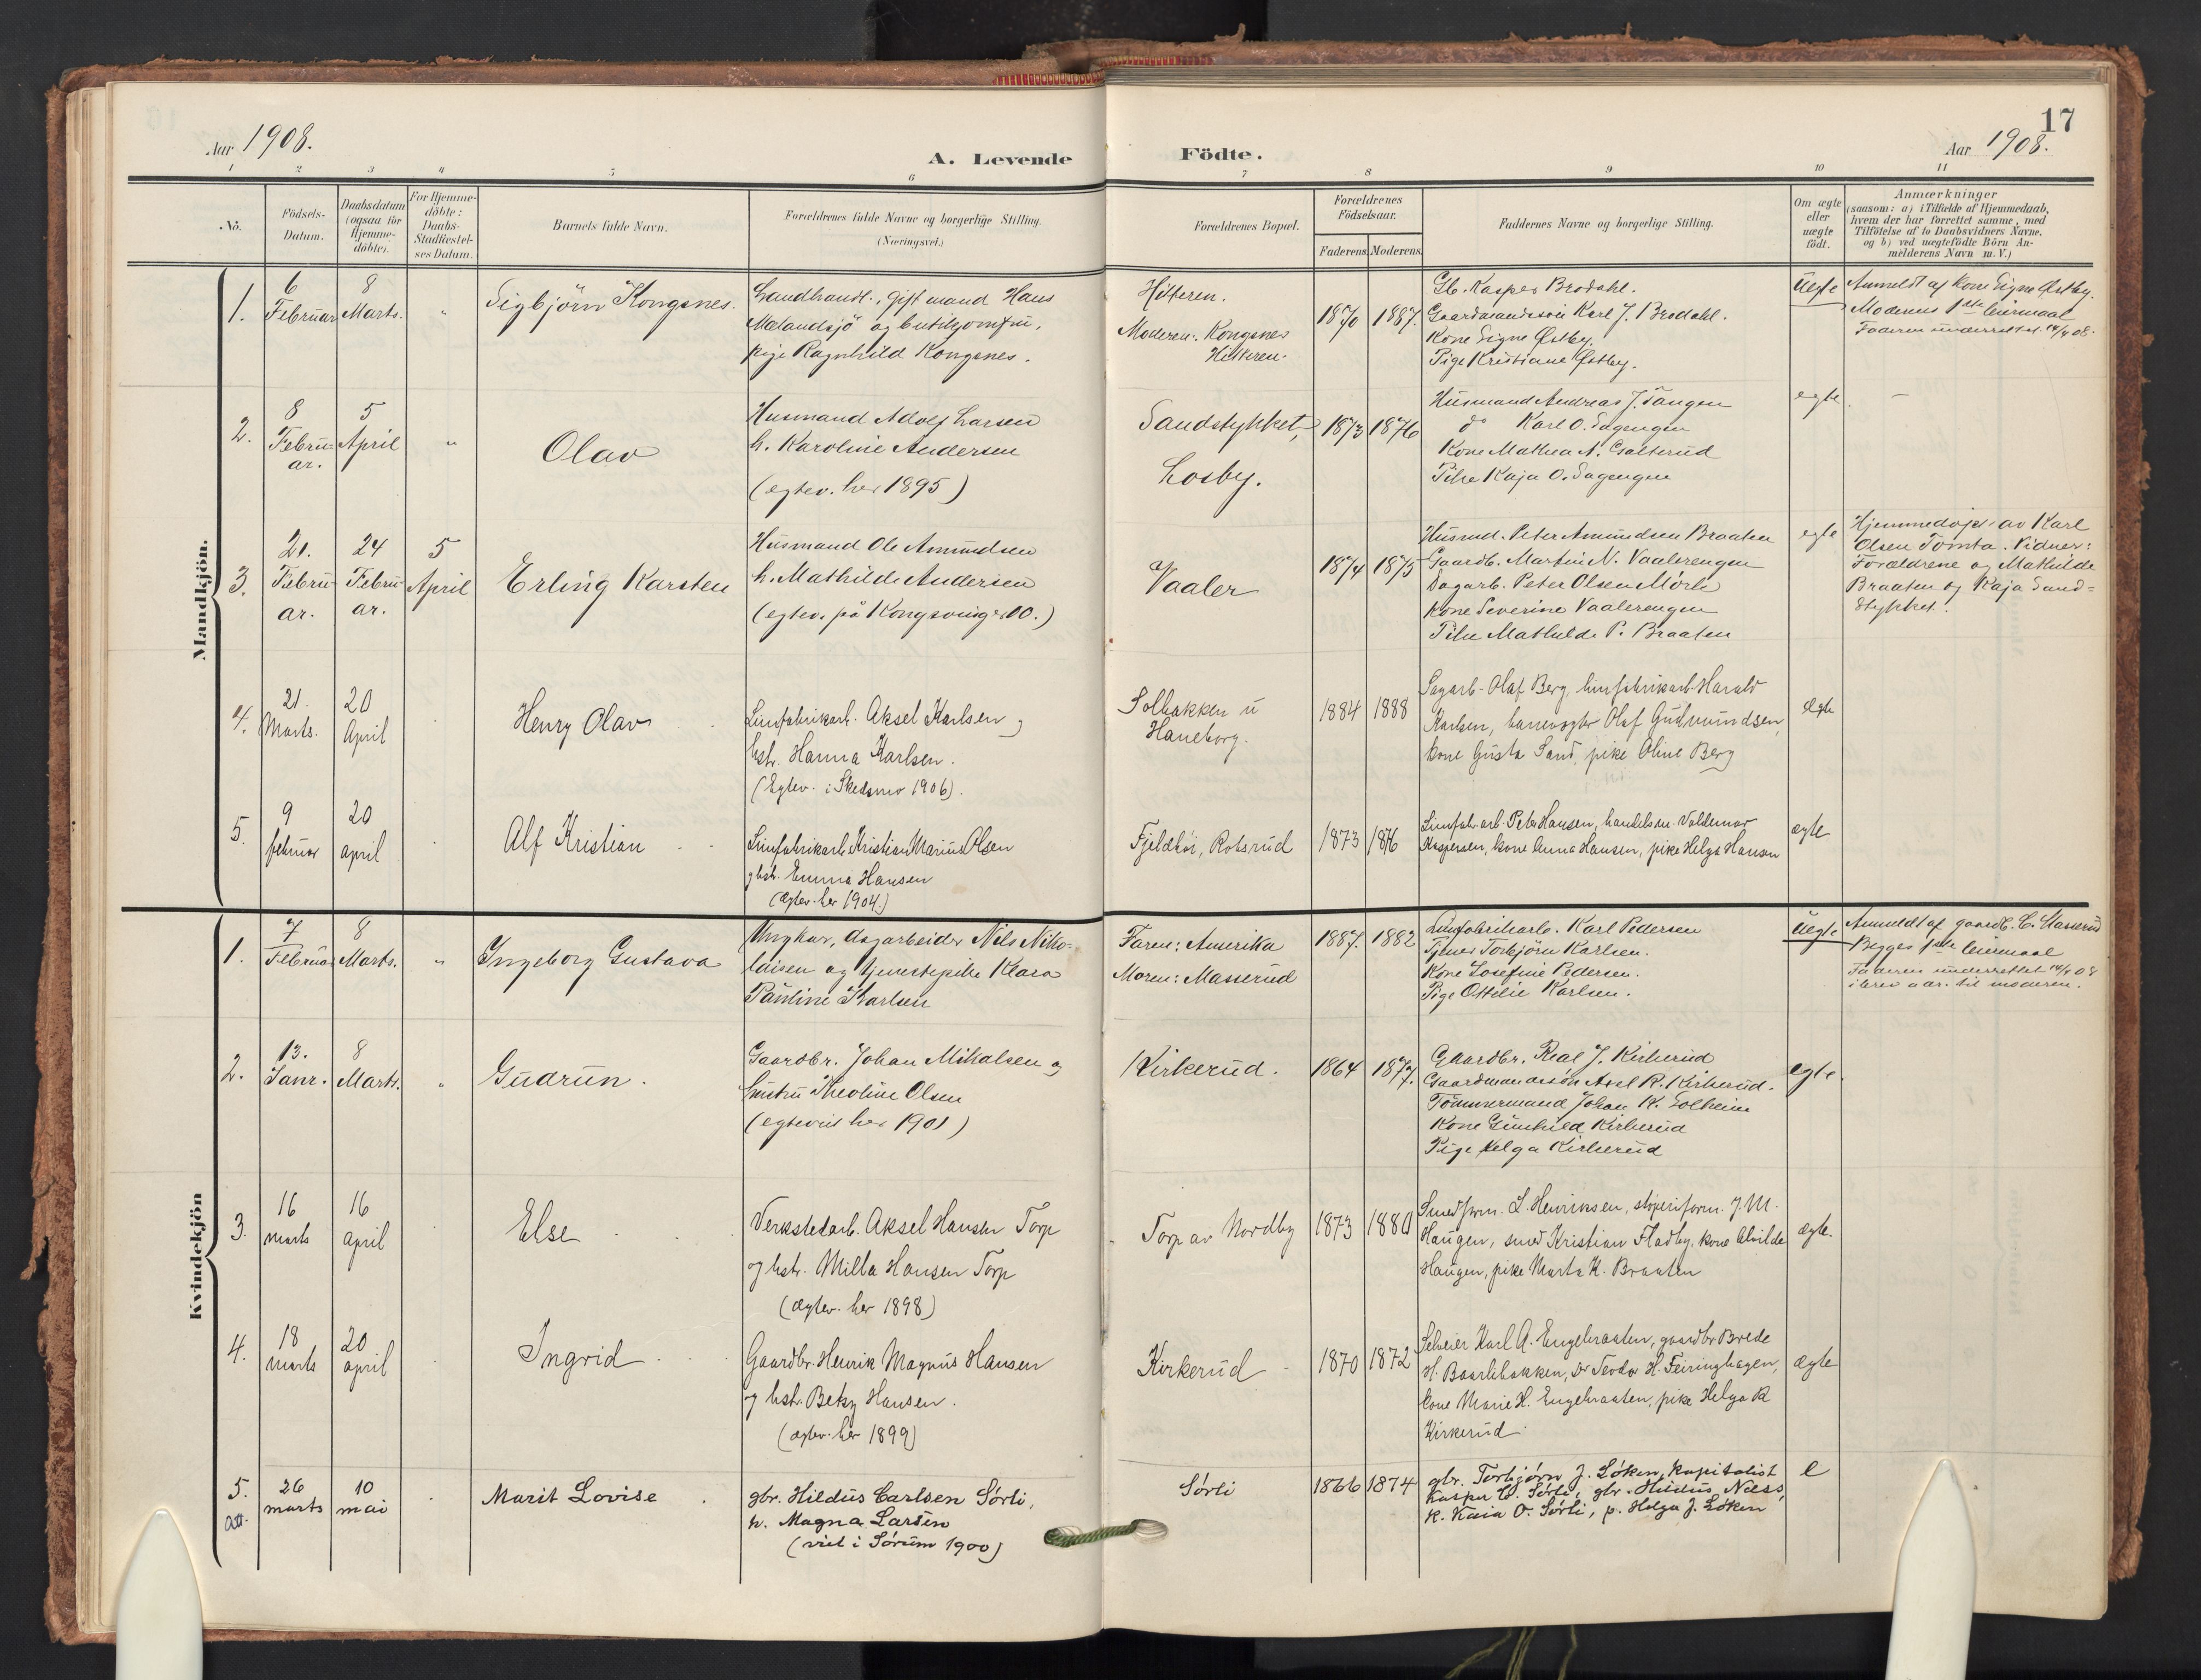 17
Aar 1908.
A. Levende Födte.
Aar 1908.
1 2 3 4 5 6 7 8 9 10 11
No.
Födsels-
Datum.
Daabsdatum
(ogsaa for
Hjemme-
döbte).
For Hjemme-
döbte:
Daabs-
Stadfæstel-
ses Datum.
Barnets fulde Navn.
Forældrenes fulde Navne og borgerlige Stilling.
(Næringsvei.)
Forældrenes Bopæl.
Forældrenes
Födselsaar.
Faderens Moderens
Faddernes Navne og borgerlige Stilling.
Om ægte
eller
uægte
födt.
Anmærkninger
(saasom: a) i Tilfælde af Hjemmedaab,
hvem der har forrettet samme, med
Tilföielse af to Daabsvidners Navne.
og b) ved uægtefödte Börn An-
melderens Navn m. V.)
Mandkjön.
1.
6
Februar
8
Marts.
"
Sigbjörn Kongsnes.
Landhandl., gift mand Hans
Mælandsjö og butikjomfru,
pige Ragnhild Kongsnes.
Hitteren.
Moderen: Kongsnes
Hitteren.
1870
1887.
Gb. Kasper Brodahl.
Gaardmandssön Karl J. Brodahl.
Kone Signe Østby.
Pige Kristiane Østby.
Uegte
Anmeldt af kone Signe Østby.
Moderens 1ste leiermaal
Faderen underrettet 14/4 08.
2.
8
Febru-
ar.
5
April
"
Olav
Husmand Adolf Larsen
h. Karoline Andersen
(egtev. her 1895)
Sandstykket,
Losby.
1873
1876
Husmand Andreas J. Tangen
do Karl O. Sagengen
Kone Mathea A. Galterud
Pike Kaja O. Sagengen
egte.
–
3.
21.
Febru-
ar.
24
Febru-
ar.
5
April
Erling Karsten
Husmand Ole Amundsen
h. Mathilde Andersen
(egtev. på Kongsvinger 00.)
Vaaler
1874
1875
Husmd. Peter Amundsen Braaten
Gaardb. Martin N. Vaalerengen
Dagarb. Peter Olsen Mörk
Kone Severine Vaalerengen
Pike Mathilde P. Braaten
egte
Hjemmedöpt av Karl
Olsen Tomta. Vidner:
Forældrene og Mathilde
Braaten og Kaja Sand=
stykket.
4.
21.
Marts.
20
April
Henry Olav
Limfabrikarb. Aksel Karlsen og
hstr. Hanna Karlsen.
(Egtev. i Skedsmo 1906).
Solbakken u
Haneborg.
1884
1888
Sagarb. Olaf Berg, limfabrikarb. Harald
Karlsen, banevogter Olaf Gudmundsen,
kone Gusta Sand, pike Oline Berg
Egte
5.
9
februar
20
april
Alf Kristian
Limfabrikarb. Kristian Marius Olsen
og hstr. Emma Hansen
(ægtev. her 1904.)
Fjeldhöi, Robsrud
1873
1876
Limfabr.arb. Peter Hansen, handelsm. Valdemar
Kaspersen, kone Anna Hansen, pike Helga Hansen
ægte.
Kvindekjön
1.
7
Februar
8
Marts.
"
Ingeborg Gustava
Ungkar, dagarbeider Nils Niko-
laisen og tjenestepike Klara
Pauline Karlsen
Faren: Amerika
Moren: Masserud
1887.
1882
Limfabrikarb. Karl Pedersen
Tjener Torbjörn Karlsen.
Kone Josefine Pedersen.
Pige Ottilie Karlsen.
Uegte
Anmeldt af gaardb. C. Masserud
Begges 1ste leiermaal
Faderen underrettet 14/4 08
i brev adr. til moderen.
2.
13.
Janr.
8
Marts.
"
Gudrun.
Gaardbr. Johan Mikalsen og
hustru Theoline Olsen
(egteviet her 1901)
Kirkerud.
1864
1877.
Gaardbr. Real J. Kirkerud
Gaardmandssön Axel R. Kirkerud.
Tömmermand Johan K. Solheim
Kone Gunhild Kirkerud
Pige Helga Kirkerud
egte.
3.
16
marts
16
april
Else
Verkstedarb. Aksel Hansen Torp
og hstr. Milla Hansen Torp
(ægtev. her 1898)
Torp av Nordby
1873
1880
Smedform. L. Henriksen, støperiform. J. M.
Haugen, smed Kristian Fladby, kone Alvilde
Haugen, pike Marta K. Braaten
ægte.
4.
18
marts
20
april
Ingrid
Gaardbr. Henrik Magnus Hansen
og hstr. Betzy Hansen.
(ægtev. her 1899)
Kirkerud
1870
1872
Selveier Karl A. Engebraaten, gaardbr Brede
H. Baarlibakken, Do Teodor H. Feiringhagen,
kone Marie H. Engebraaten, pike Helga R
Kirkerud
ægte
5.
att.
26
marts
10
mai
Marit Lovise
gbr. Hildus Carlsen Sörli,
h. Magna Larsen
(viet i Sörum 1900)
Sörli
1866
1874
gbr. Torbjørn J. Løken, kapitalist
Kasper C. Sørli, gbr. Hildus Niess,
k. Kaia O. Sørli, p. Helga J. Løken
e